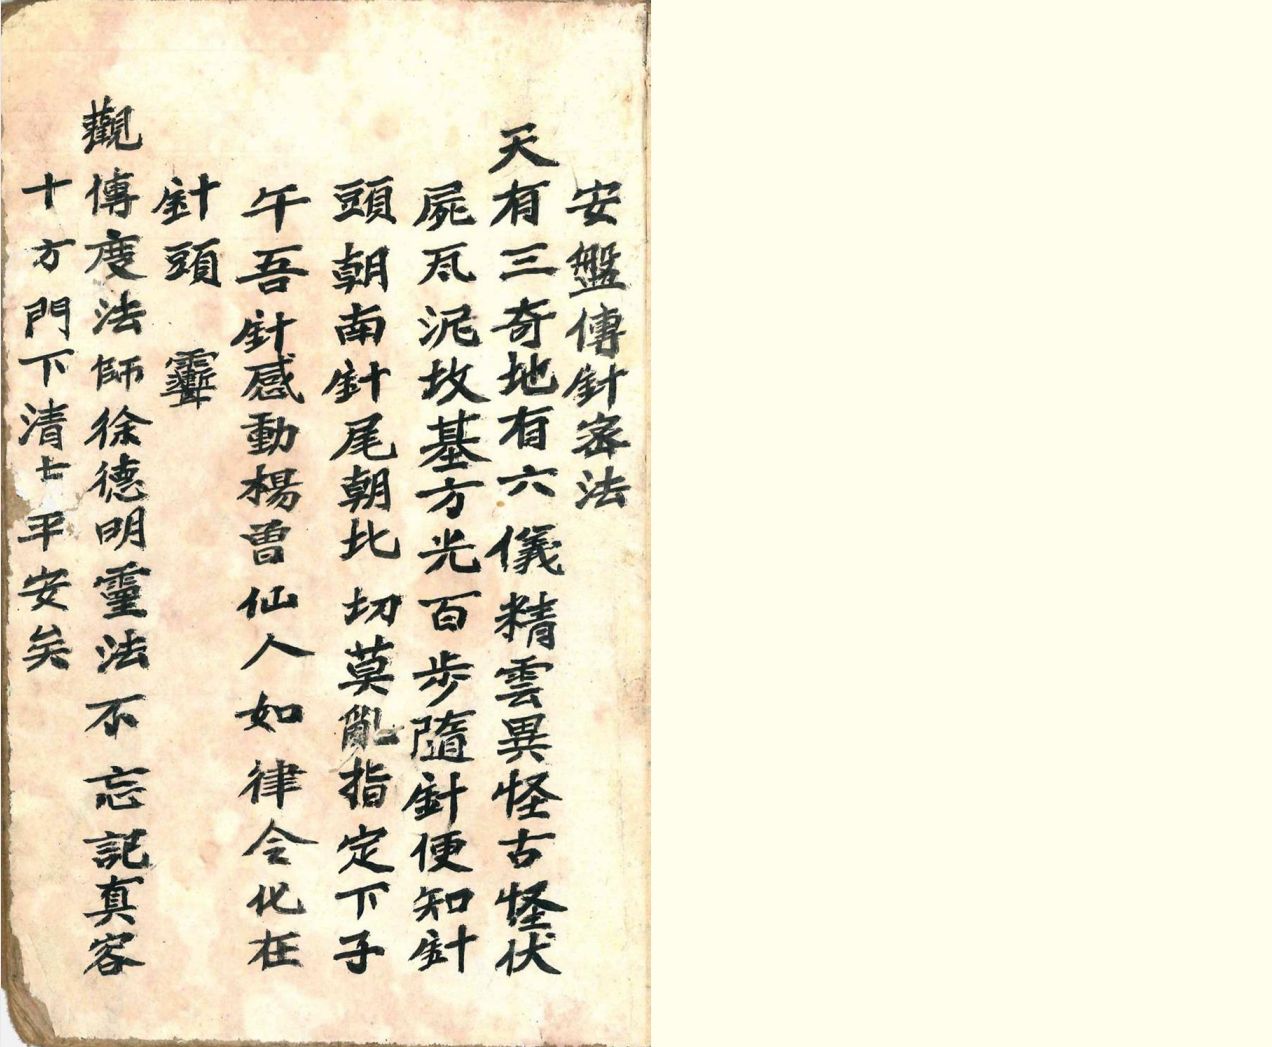 安盤傳針密法
天有三奇地有六儀精雲異怪古怪伏
屍瓦泥坟基方光百步隨針便知針
頭朝南針尾朝比切莫亂指定下子
午吾針感動楊曽仙人如律令化在
針頭
觀傳度法師徐德明靈法不忘記真容
十方門下清七平安矣